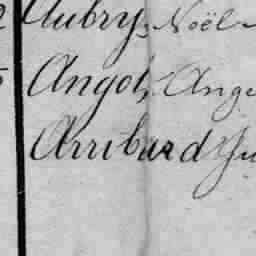 Aubry, Noël
Angot, Ange
Arribard Ju